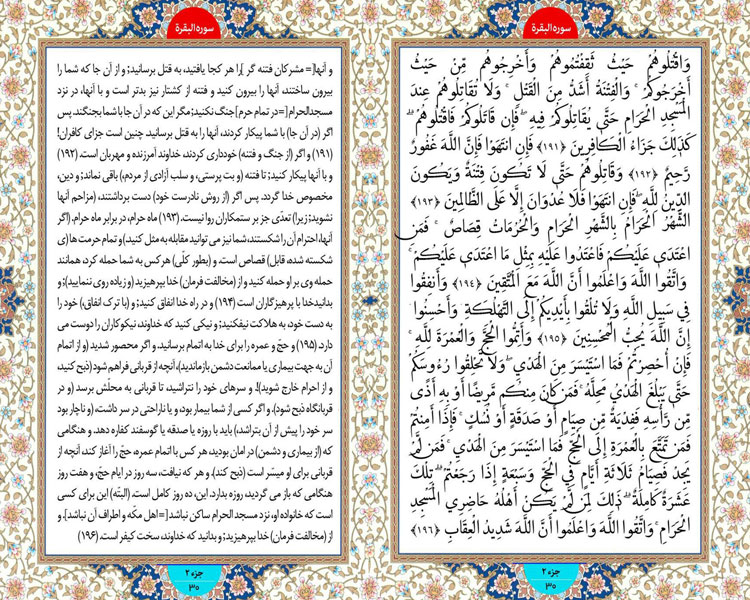 سوره البقرة
وَاقْتُلُوهُمْ حَيْثُ ثَقِفْتُمُوهُمْ وَأَخْرِجُوهُم مِّنْ حَيْثُ
أَخْرَجُوكُمْ ۚ وَالْفِتْنَةُ أَشَدُّ مِنَ الْقَتْلِ ۚ وَلَا تُقَاتِلُوهُمْ عِندَ
الْمَسْجِدِ الْحَرَامِ حَتَّىٰ يُقَاتِلُوكُمْ فِيهِ ۖ فَإِن قَاتَلُوكُمْ فَاقْتُلُوهُمْ ۗ
كَذَٰلِكَ جَزَاءُ الْكَافِرِينَ ﴿۱۹۱﴾ فَإِنِ انتَهَوْا فَإِنَّ اللَّهَ غَفُورٌ
رَّحِيمٌ ﴿۱۹۲﴾ وَقَاتِلُوهُمْ حَتَّىٰ لَا تَكُونَ فِتْنَةٌ وَيَكُونَ
الدِّينُ لِلَّهِ ۖ فَإِنِ انتَهَوْا فَلَا عُدْوَانَ إِلَّا عَلَى الظَّالِمِينَ ﴿۱۹۳﴾
الشَّهْرُ الْحَرَامُ بِالشَّهْرِ الْحَرَامِ وَالْحُرُمَاتُ قِصَاصٌ ۚ فَمَنِ
اعْتَدَىٰ عَلَيْكُمْ فَاعْتَدُوا عَلَيْهِ بِمِثْلِ مَا اعْتَدَىٰ عَلَيْكُمْ ۚ
وَاتَّقُوا اللَّهَ وَاعْلَمُوا أَنَّ اللَّهَ مَعَ الْمُتَّقِينَ ﴿۱۹۴﴾ وَأَنفِقُوا
فِي سَبِيلِ اللَّهِ وَلَا تُلْقُوا بِأَيْدِيكُمْ إِلَى التَّهْلُكَةِ ۛ وَأَحْسِنُوا ۛ
إِنَّ اللَّهَ يُحِبُّ الْمُحْسِنِينَ ﴿۱۹۵﴾ وَأَتِمُّوا الْحَجَّ وَالْعُمْرَةَ لِلَّهِ ۚ
فَإِنْ أُحْصِرْتُمْ فَمَا اسْتَيْسَرَ مِنَ الْهَدْيِ ۖ وَلَا تَحْلِقُوا رُءُوسَكُمْ
حَتَّىٰ يَبْلُغَ الْهَدْيُ مَحِلَّهُ ۚ فَمَن كَانَ مِنكُم مَّرِيضًا أَوْ بِهِ أَذًى
مِّن رَّأْسِهِ فَفِدْيَةٌ مِّن صِيَامٍ أَوْ صَدَقَةٍ أَوْ نُسُكٍ ۚ فَإِذَا أَمِنتُمْ
فَمَن تَمَتَّعَ بِالْعُمْرَةِ إِلَى الْحَجِّ فَمَا اسْتَيْسَرَ مِنَ الْهَدْيِ ۚ فَمَن لَّمْ
يَجِدْ فَصِيَامُ ثَلَاثَةِ أَيَّامٍ فِي الْحَجِّ وَسَبْعَةٍ إِذَا رَجَعْتُمْ ۗ تِلْكَ
عَشَرَةٌ كَامِلَةٌ ۗ ذَٰلِكَ لِمَن لَّمْ يَكُنْ أَهْلُهُ حَاضِرِي الْمَسْجِدِ
الْحَرَامِ ۚ وَاتَّقُوا اللَّهَ وَاعْلَمُوا أَنَّ اللَّهَ شَدِيدُ الْعِقَابِ ﴿۱۹۶﴾
جزء ۲
۳۰
سوره البقرة
و آنها[= مشرکان فتنه گر ]را هر کجا یافتید، به قتل برسانید; و از آن جا که شما را
بیرون ساختند، آنها را بیرون کنید و فتنه از کشتار نیز بدتر است و با آنها، در نزد
مسجدالحرام [= در تمام حرم ] جنگ نکنید; مگر این که در آن جا با شما بجنگند. پس
اگر (در آن جا) با شما پیکار کردند، آنها را به قتل برسانید. چنین است جزای کافران!
(۱۹۱) و اگر (از جنگ و فتنه) خودداری کردند، خداوند آمرزنده و مهربان است. (۱۹۲)
و با آنها پیکار کنید; تا فتنه (و بت پرستی، و سلب آزادی از مردم،) باقی نماند; و دین،
مخصوص خدا گردد. پس اگر (از روش نادرست خود) دست برداشتند، (مزاحم آنها
نشوید; زیرا) تعدّی جز بر ستمکاران روا نیست. (۱۹۳) ماه حرام، در برابر ماه حرام. (اگر
آنها، احترام آن را شکستند، شما نیز می توانید مقابله به مثل کنید;) و تمام حرمت ها(ی
شکسته شده، قابل) قصاص است. و (بطور کلّی) هر کس به شما حمله کرد، همانند
حمله وی بر او حمله کنید و از (مخالفت فرمان) خدا بپرهیزید (و زیاده روی ننمایید); و
بدانید خدا با پرهیزگاران است (۱۹۴) و در راه خدا انفاق کنید; و (با ترک انفاق،) خود را
به دست خود، به هلاکت نیفکنید; و نیکی کنید که خداوند، نیکوکاران را دوست می
دارد. (۱۹۵) و حجّ و عمره را برای خدا به اتمام برسانید. و اگر محصور شدید (و از اتمام
آن به جهت بیماری یا ممانعت دشمن بازماندید)، آنچه از قربانی فراهم شود (ذبح کنید،
و از احرام خارج شوید)!. و سرهای خود را نتراشید، تا قربانی به محلّش برسد (و در
قربانگاه ذبح شود). و اگر کسی از شما بیمار بود، و یا ناراحتی در سر داشت، (و ناچار بود
سر خود را پیش از آن بتراشد،) باید با روزه یا صدقه یا گوسفند کفاره دهد. و هنگامی
که (از بیماری و دشمن) در امان بودید، هر کس با اتمام عمره، حجّ را آغاز کند، آنچه از
قربانی برای او میسّر است (ذبح کند). و هر که نیافت، سه روز در ایام حجّ، و هفت روز
هنگامی که باز می گردید، روزه بدارد. این، ده روز کامل است. (البتّه) این برای کسی
است که خانواده او، نزد مسجد الحرام ساکن نباشد [=اهل مکّه و اطراف آن نباشد]. و
از (مخالفت فرمان) خدا بپرهیزید; و بدانید که خداوند، سخت کیفر است. (۱۹۶)
جزء ۲
۳۰